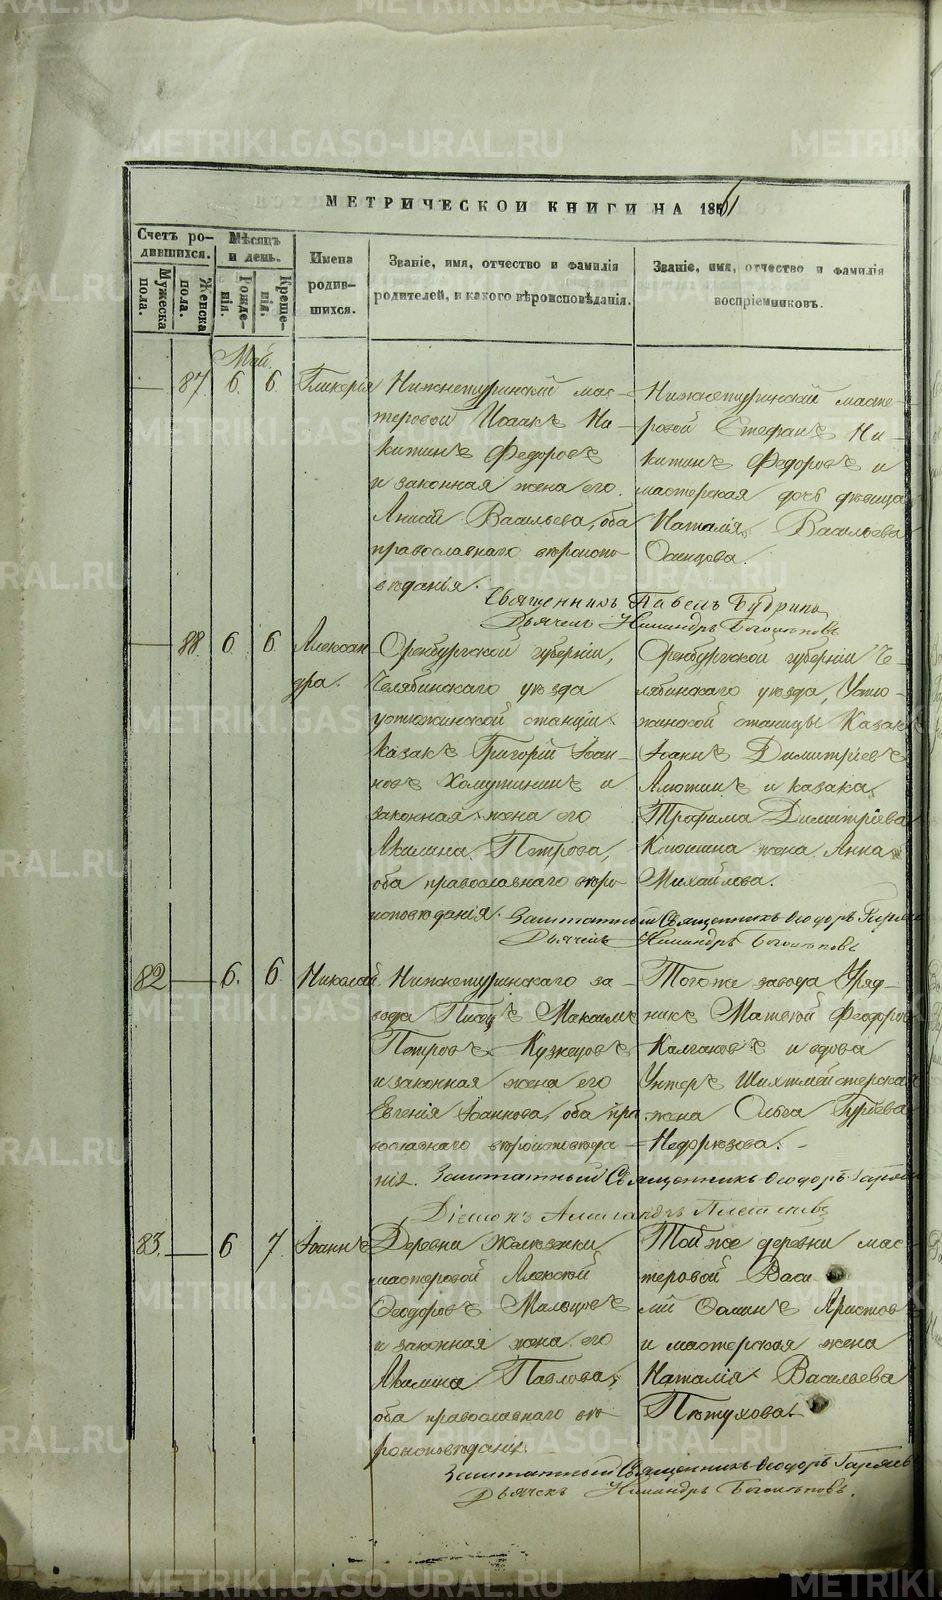 МЕТРИЧЕСКОЙ КНИГИ НА 1861
Счетъ родившихся.
Мужеска пола.
Женска пола.
Мѣсяцъ и день.
Рожденія.
Крещенія.
Имена родившихся.
Званіе, имя, отчество и фамилія
родителей, и какого вѣроисповѣданія.
Званіе, имя, отчество и фамилія
воспріемниковъ.
Май.
87. 6. 6 Гликерія
Нижнетуринскій мас-
теровой Исаакъ Ни-
китинъ Федоровъ
и законная жена его
Васильева, оба
православнаго вѣроиспо-
вѣданья.
Нижнетуринскій масте-
ровой Стефанъ Ни-
китинъ Федоровъ и
мастерская дочь дѣвица
Наталія Васильева
Священникъ Павелъ Будринъ
Дьячекъ Никандръ Богомоловъ
88. 6 6 Алексан
дра.
Оренбургской губерніи,
Челябинскаго уѣзда
казакъ Григорій Іоан-
новъ и
законная жена его
Акилина Петрова,
оба православнаго вѣро-
исповѣданія.
Оренбургской губерніи Че-
лябинскаго уѣзда,
станицы Казакъ
Іоаннъ Димитріевъ
и казака
Трофима Димитріева
жена Анна
Михайлова.
Заштатный Священникъ Ѳеодоръ
Дьячекъ Никандръ Богомоловъ
82 6. 6. Николай
Нижнетуринскаго за-
вода Писецъ Максимъ
Петровъ Кузнецовъ
и законная жена его
Евгенія Іоаннова, оба пра
вославнаго вѣроисповѣда-
нія.
Тогоже завода Уряд-
никъ Матвѣй Феодоровъ
Калгановъ и вдова
Унтеръ Шихтмейстерская
жена Ольга Гурьева
Недорѣзова.
Заштатный Священникъ Ѳеодоръ
Діаконъ Александръ
83. 6 7 Іоаннъ
Деревни
мастеровой Алексѣй
Ѳеодоровъ Мальцовъ
и законная жена его
Акилина Павлова,
оба православнаго вѣ-
роисповѣданія.
Той же деревни мас-
теровой Васи
лій Аристовъ
и мастерская жена
Наталія Васильева
Пѣтухова.
Заштатный Священникъ Ѳеодоръ
Дьячекъ Никандръ Богомоловъ.
METRIKI.GASO-URAL.RU